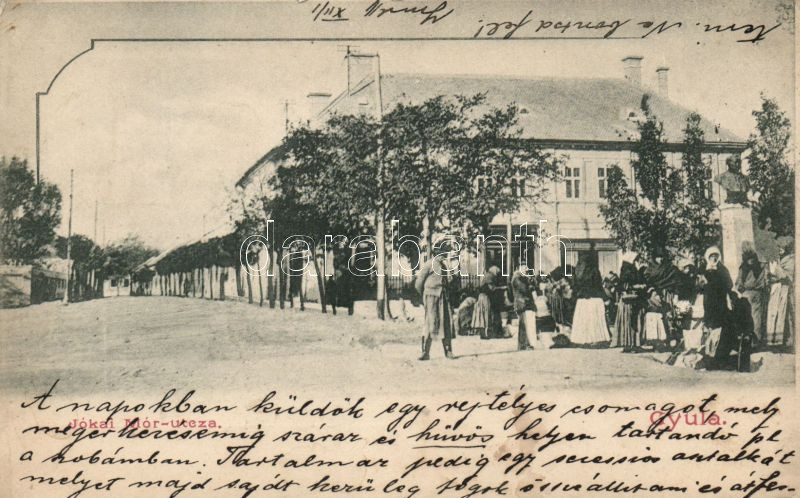 XII/11
Nem. Ne bontsd fel!
darabanth
Jókai Mór-utcza.
Gyula.
A napokban küldök egy rejtélyes csomagot, mely
megérkezésemig száraz és hűvös helyen tartandó pl
a kobámban. Tartalmaz pedig egy secessios antalkát
melyet majd saját kerüleg fogok összeállitani és átfes-